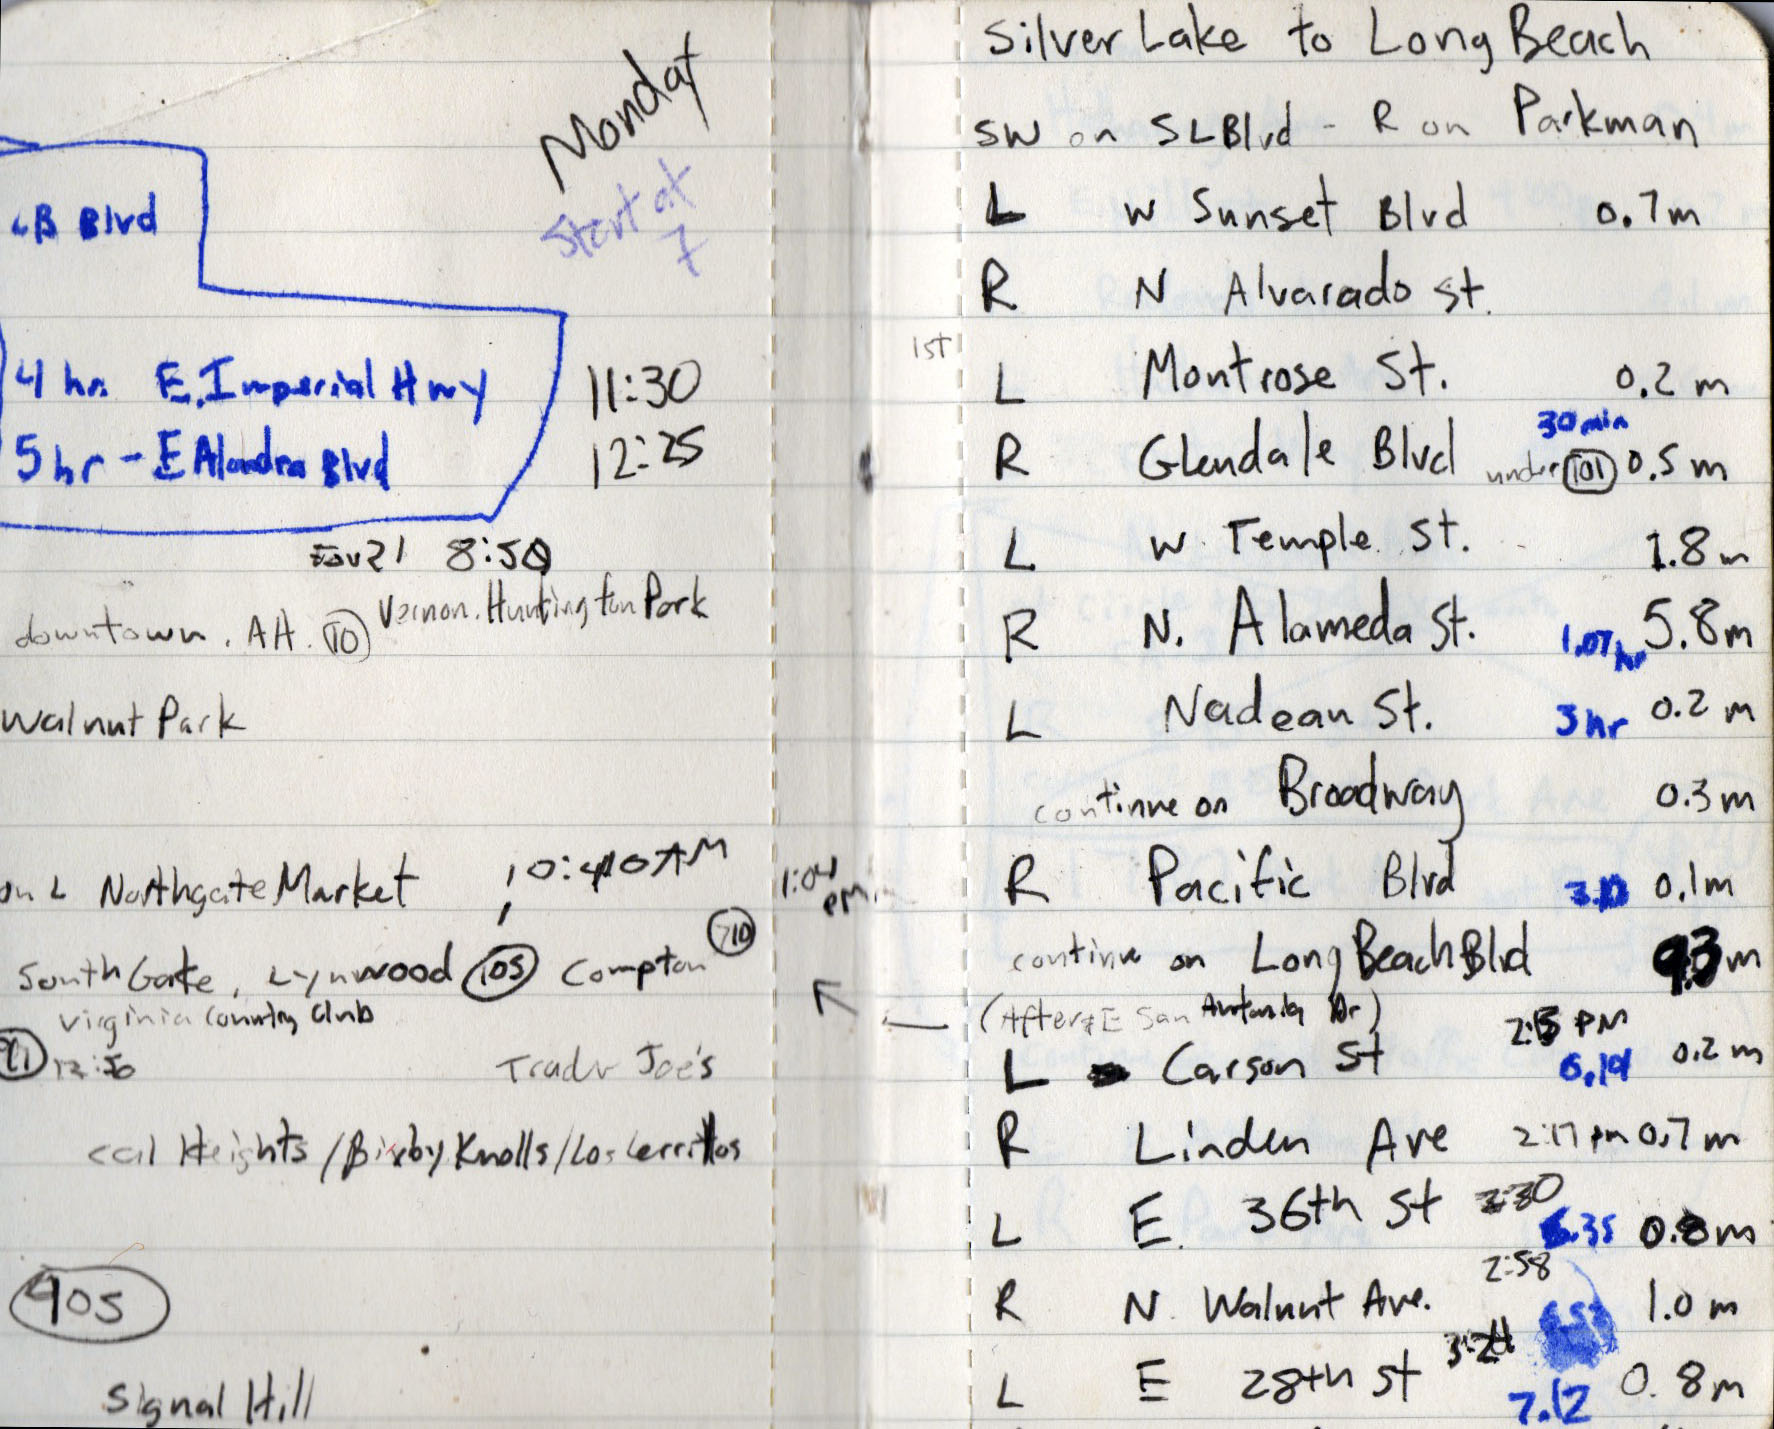 Monday
Start at
7
LB Blvd
4 hr. E. Imperial Hwy 11:30
5 hr - E Alondra Blvd 12:25
8:50
downtown. AA. 10 Vernon. Huntington Park
Walnut Park
on L Northgate Market 10:40 AM
1:04
pm
South Gate, Lynwood 105 Compton 710
Virginia Country Club
91 12:50 Trader Joe's
Cal Heights / Bixby Knolls / Los Cerritos
405
Signal Hill
Silver Lake to Long Beach
SW on SL Blvd - R on Parkman
L W Sunset Blvd 0.7 m
R N Alvarado St.
1st L Montrose St. 0.2 m
30 min
R Glendale Blvd under 101 0.5 m
L W. Temple St. 1.8 m
R N. Alameda St. 1.07 hr 5.8 m
L Nadean St. 3 hr 0.2 m
continue on Broadway 0.3 m
R Pacific Blvd 0.1 m
continue on Long Beach Blvd 9.3 m
(After E San Antonio Dr)
PM
L Carson St 6.14 0.2 m
R Linden Ave 2:17 pm 0.7 m
L E. 36th St 6.35 0.8 m
2:58
R N. Walnut Ave. 1.0 m
L E 28th St 3:24 7.12 0.8 m